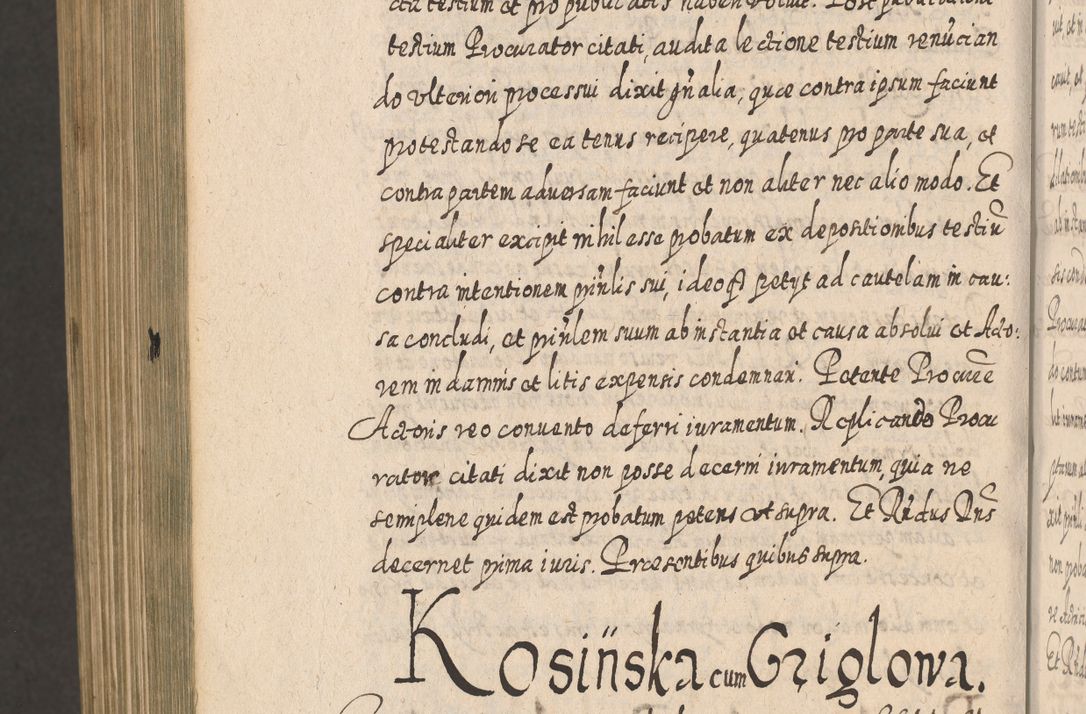 cta testium et pro publicatis haberi voluit. Post publicationem
testium Procurator citati, audita lectione testium renũcian
do vlteriori processui dixit gñralia, quæ contra ipsum faciunt
protestando se ea tenus recipere, quatenus pro parte sua, et
contra partem aduersam faciunt et non aliter nec alio modo. Et
specialiter excipit nihil esse probatum ex depositionibus testiũ
contra intentionem prin̄lis sui, ideoq₃ petijt ad cautelam in cau:
sa concludi, et prin̄lem suum ab instantia et causa absolui et Acto:
rem in damnis et litis expensis condemnari. Petente Procure
Actoris reo conuento deferri iuramentum. Replicando Procu
rator citati dixit non posse decerni iuramentum, quia ne
semiplene quidem est probatum petens vt supra. Et Rñdus Dñs
decernet prima iuris. Præsentibus quibus supra.
Kosińska cum Gziglowa.